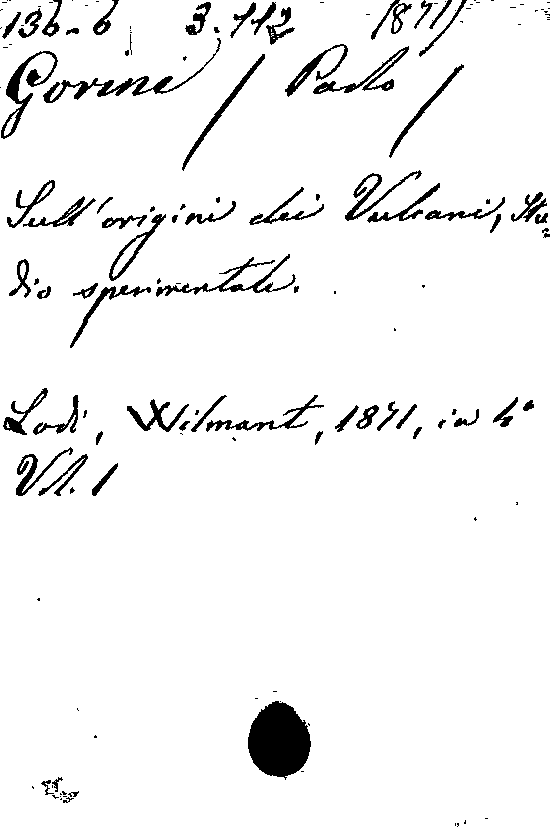 136-6 3.112 1871)
Gorini / Paolo /
Sull'origini dei Vulcani, Stu=
dio sperimentale.
Lodi, Wilmant, 1871, in 4°
Vol. 1